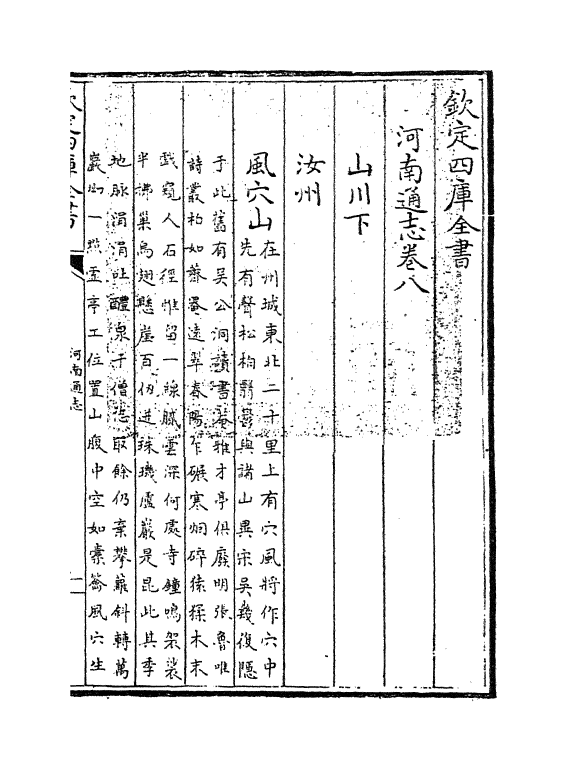 欽定四庫全書
河南通志卷八
山川下
汝州
風穴山在州城東北二十里上有穴風將作穴中
先有聲松柏翳鬱與諸山異宋吴幾復隠
于此舊有吴公洞讀書菴雅才亭俱廢明張魯唯
詩叢柏如薺晷逺翠春陽作碾寒烟碎猿猱木末
戲窺人石徑惟留一線膩雲深何處寺鐘鳴架裟
半拂巢鳥翅懸崖百仞迸珠璣虚巖是昆此其季
地脉涓涓吐醴泉千僧取餘仍棄攀蘿斜轉萬
巖一㸃孟亭工位置山腹中空如橐籥風穴生
河南通志
一